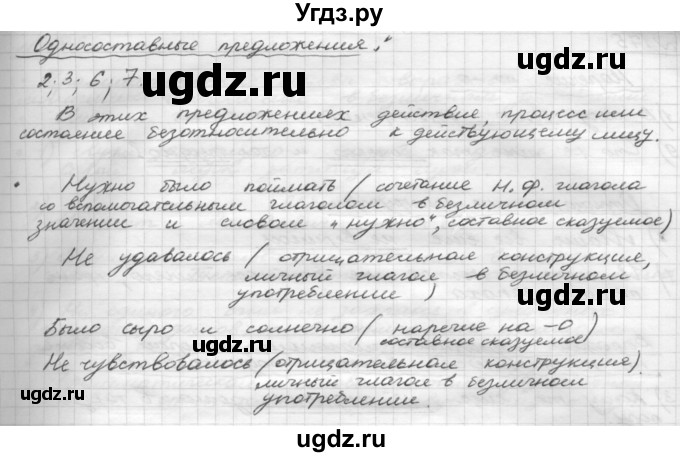 Угдз.ру
Односоставные предложения."
2; 3; 6; 7.
В этих предложениях действие, процесс или
состояние безотносительно к действующему лицу.
Нужно было поймать (сочетание Н.ф. глагола
со вспомогательным глаголом в безличном
значении и словом „нужно", составное сказуемое)
Не удавалось (отрицательная конструкция,
личный глагол в безличном
употреблении)
Было сыро и солнечно (наречие на -о)
составное сказуемое
Не чувствовалось (отрицательная конструкция)
личный глагол в безличном
употреблении.
ugdz.ru
ugdz.ru
ugdz.ru
ugdz.ru
ugdz.ru
ugdz.ru
ugdz.ru
ugdz.ru